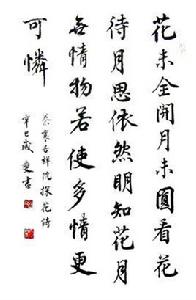 花未全開月未圓看花
待月思依然明知花月
無情物若使多情更
可憐
蔡襄吉祥院探花詩
辛巳歲書